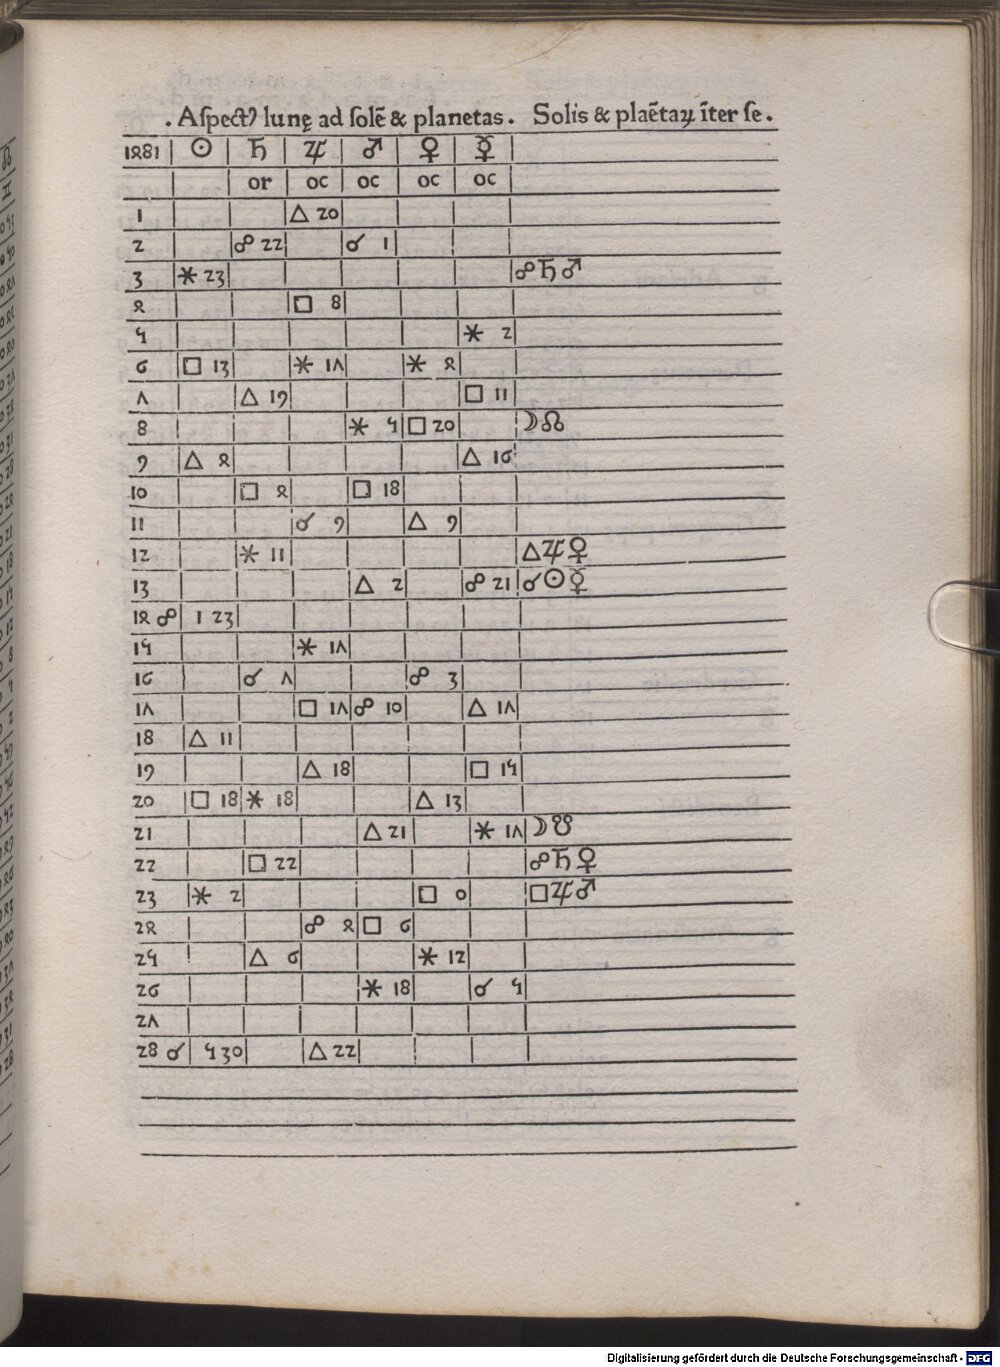 . Aſpectꝰ lunę ad ſolē & planetas . Solis & plaētaꝝ īter ſe .
1481 ☉ ♄ ♃ ♂ ♀ ☿
or oc oc oc oc
1 △ 20
2 ☍ 22 ☌ 1
3 ⚹ 23 ☍ ♄ ♂
4 □ 8
5 ⚹ 2
6 □ 13 ⚹ 17 ⚹ 4
7 △ 19 □ 11
8 ⚹ 5 □ 20 ☽ ☊
9 △ 4 △ 16
10 □ 4 □ 18
11 ☌ 9 △ 9
12 ⚹ 11 △ ♃ ♀
13 △ 2 ☍ 21 ☌ ☉ ☿
14 ☍ 1 23
15 ⚹ 17
16 ☌ 7 ☍ 3
17 □ 17 ☍ 10 △ 17
18 △ 11
19 △ 18 □ 15
20 □ 18 ⚹ 18 △ 13
21 △ 21 ⚹ 17 ☽ ☋
22 □ 22 ☍ ♄ ♀
23 ⚹ 2 □ 0 □ ♃ ♂
24 ☍ 4 □ 6
25 △ 6 ⚹ 12
26 ⚹ 18 ☌ 5
27
28 ☌ 5 30 △ 22
Digitalisierung gefördert durch die Deutsche Forschungsgemeinschaft - DFG